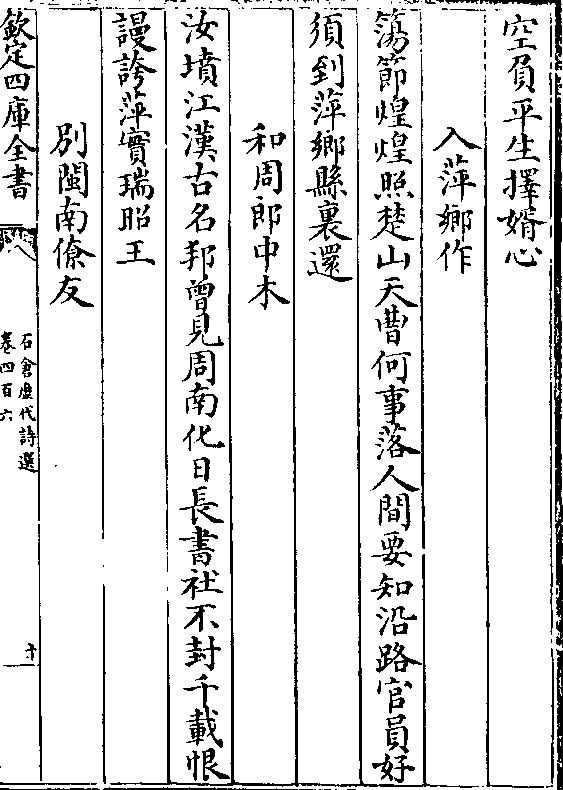 空負平生擇婿心
入萍鄉作
蕩節煌煌照楚山天曹何事落人間要知沿路官員好
須到萍鄉縣裏還
和周郎中木
汝墳江漢古名邦曾見周南化日長書社不封千載恨
謾誇萍實瑞昭王
別閩南僚友
欽定四庫全書
石倉歷代詩選
卷四百六
十